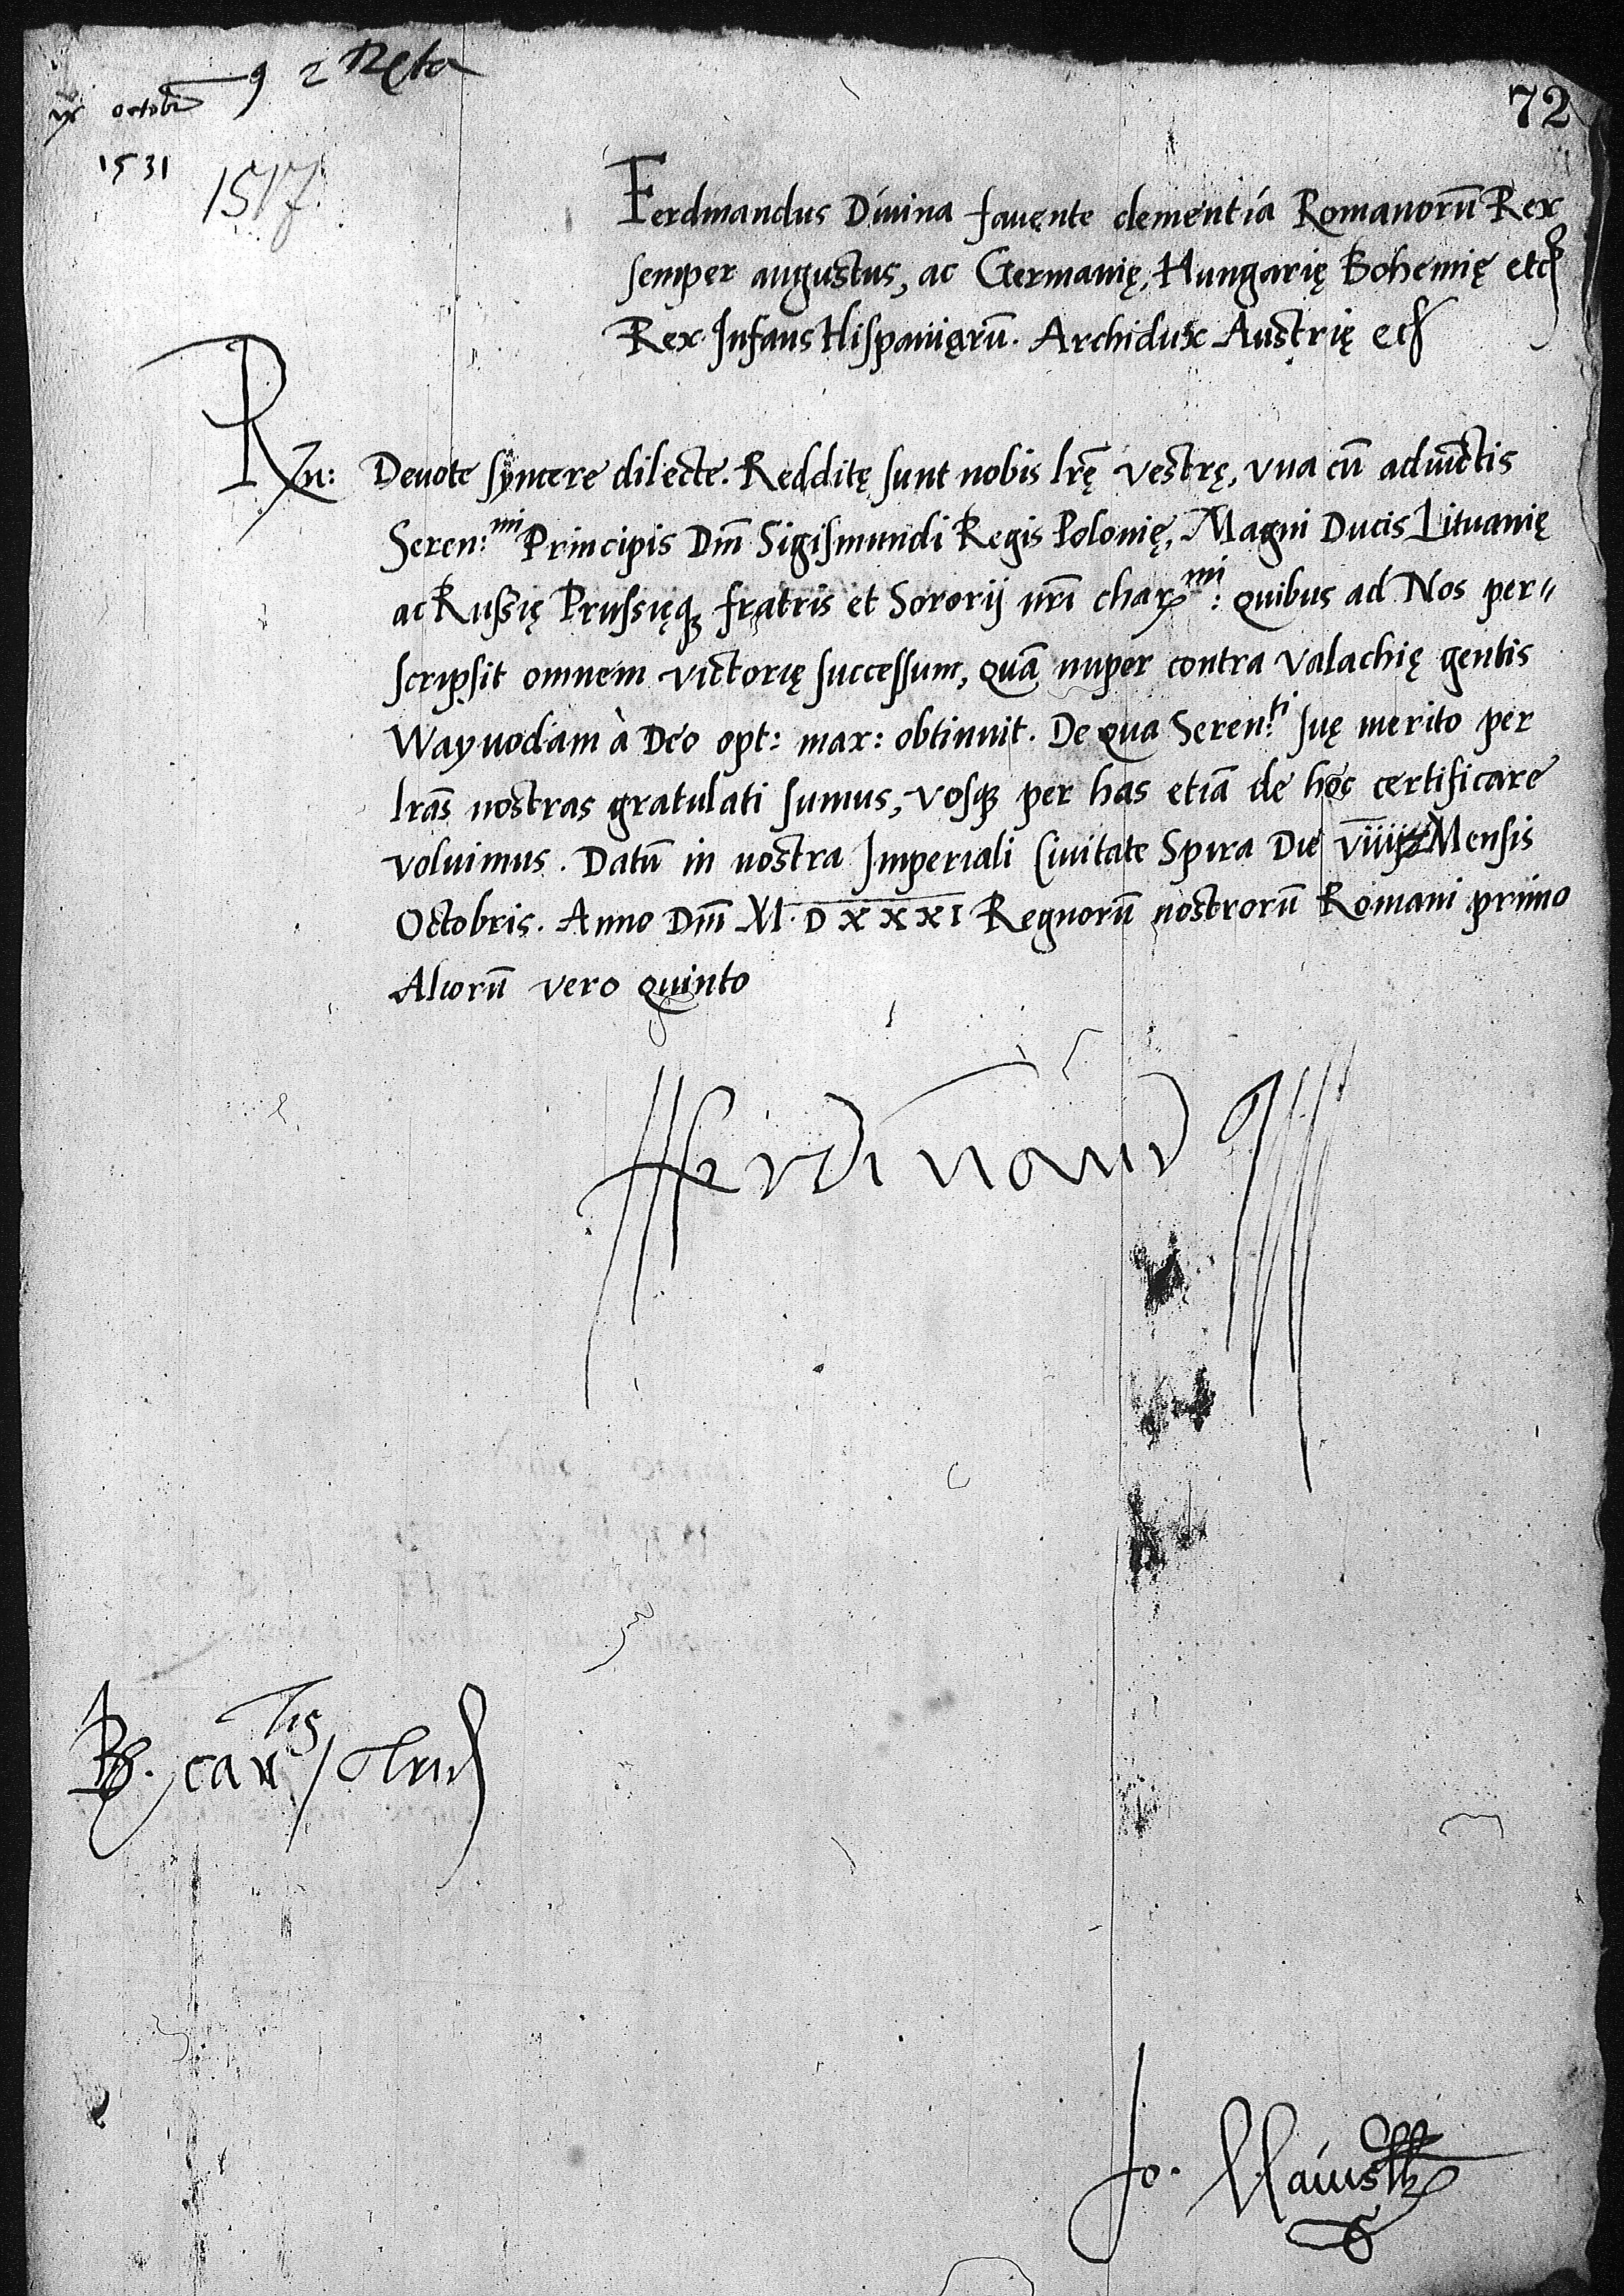 72
ix octobr
1531
1517
Ferdinandus Diuina fauente clementia Romanorũ Rex
semper augustus, ac Germanię, Hungarię Bohemię etc
Rex. Infans Hispaniarũ. Archidux Austrię etc
Rn: Deuote syncere dilecte. Redditę sunt nobis lrę vestrę, vna cũ adiunctis
Seren:mi Principis Dnĩ Sigismundi Regis Polonię, Magni Ducis Lituanię
ac Russię Prussięq3 fratris et Sororij nrĩ charmi: quibus ad Nos per=
scripsit omnem victorię successum, quã nuper contra Valachię gentis
Wayuodam à Deo opt: max: obtinuit. De qua Seren:ti suę merito per
lrãs nostras gratulati sumus, vosq3 per has etiã de hoc certificare
voluimus. Datũ in nostra Imperiali Ciuitate Spira Die viiij Mensis
Octobris. Anno Dnĩ M.DXXXI Regnorũ nostrorũ Romani primo
Aliorũ vero quinto
Ferdinand
B. car
Jo.